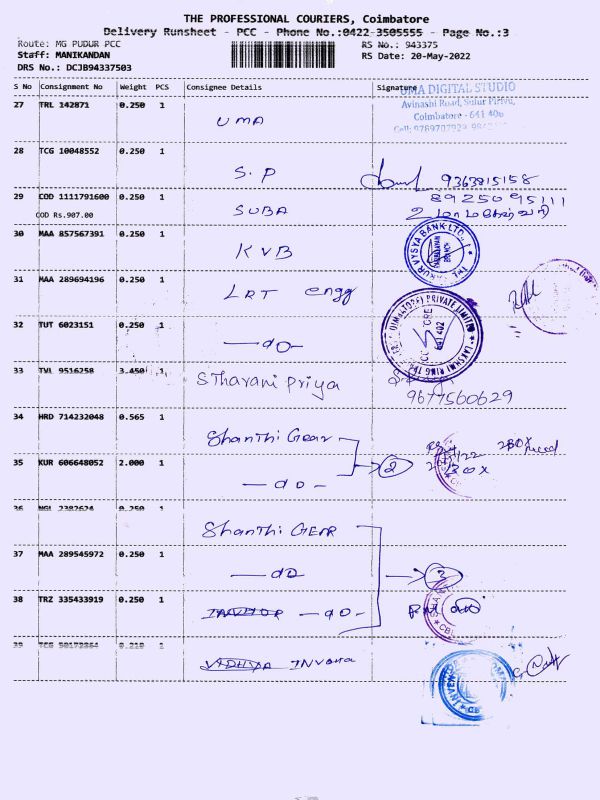 THE PROFESSIONAL COURIERS, Coimbatore
Delivery Runsheet - PCC - Phone No.:0422-3505555 - Page No.:3
Route: MG PUDUR PCC RS No.: 943375
Staff: MANIKANDAN RS Date: 20-May-2022
DRS No.: DCJB94337503
S No Consignment No Weight PCS Consignee Details Signature
UMA DIGITAL STUDIO
27 TRL 142871 0.250 1 UMA
Avinashi Road, Sulur Pirivu,
Coimbatore - 641 406
Cell: 9789707929
28 TCG 10048552 0.250 1 S.P 9363815158
29 COD 1111791600 0.250 1 SUBA 8925095111
COD Rs.907.00
30 MAA 857567391 0.250 1 KVB
VYSYA BANK LTD.
31 MAA 289694196 0.250 1 LRT engg
PRIVATE LIMITED
LAKSHMI RING
641 402
32 TUT 6023151 0.250 1 —do—
33 TVL 9516258 3.450 1 STharani priya
9677560629
34 HRD 714232048 0.565 1 Shanthi Gear
2
35 KUR 606648052 2.000 1 —do—
36 NGL 2382624 0.250 1 Shanthi GEAR
37 MAA 289545972 0.250 1 —do 3
38 TRZ 335433919 0.250 1 —do—
39 TCG 50172864 0.210 1 VIDHYA